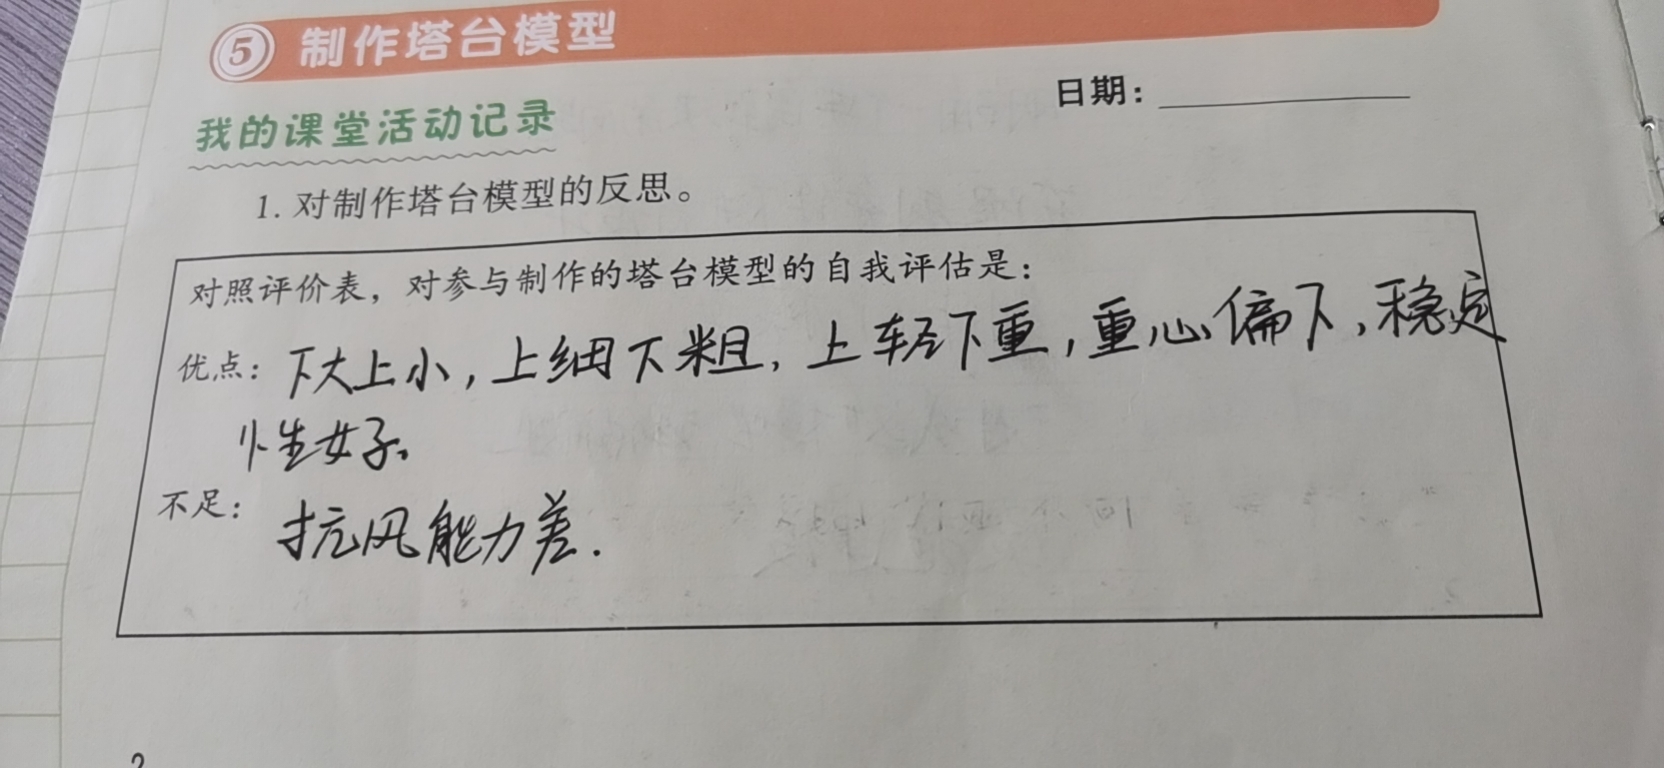 5 制作塔台模型
日期：
我的课堂活动记录
1. 对制作塔台模型的反思。
对照评价表，对参与制作的塔台模型的自我评估是：
优点：下大上小，上细下粗，上轻下重，重心偏下，稳定
性好。
不足：抗风能力差.